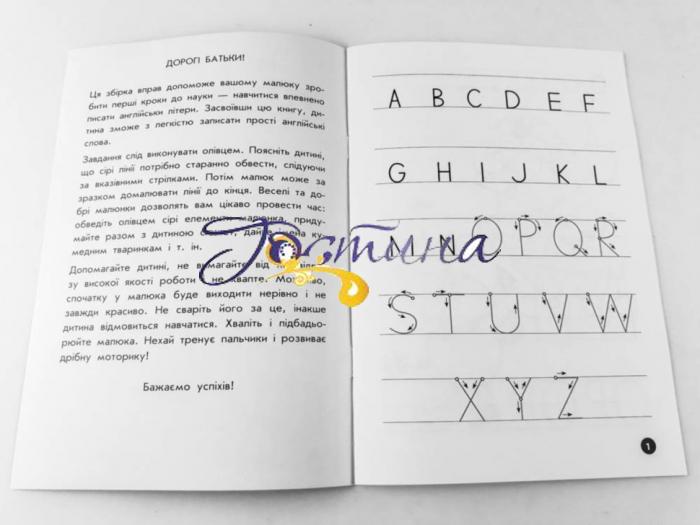 ДОРОГІ БАТЬКИ!
Ця збірка вправ допоможе вашому малюку зро-
бити перші кроки до науки — навчитися впевнено
писати англійськи літери. Засвоївши цю книгу, ди-
тина зможе з легкістю записати прості англійські
слова.
Завдання слід виконувати олівцем. Поясніть дитині,
що сірі лінії потрібно старанно обвести, слідуючи
за вказівними стрілками. Потім малюк може за
зразком домалювати лінії до кінця. Веселі та до-
брі малюнки дозволять вам цікаво провести час:
обведіть олівцем сірі елементи малюнка, приду-
майте разом з дитиною дайте імена ку-
медним тваринкам і т. ін.
Допомагайте дитині, не вимагайте від
зу високої якості роботи не квапте.
спочатку у малюка буде виходити нерівно і не
завжди красиво. Не сваріть його за це, інакше
дитина відмовиться навчатися. Хваліть і підбадьо-
рюйте малюка. Нехай тренує пальчики і розвиває
дрібну моторику!
Бажаємо успіхів!
Гостина
A B C D E F
G H I J K L
M N O P Q R
S T U V W
X Y Z
1